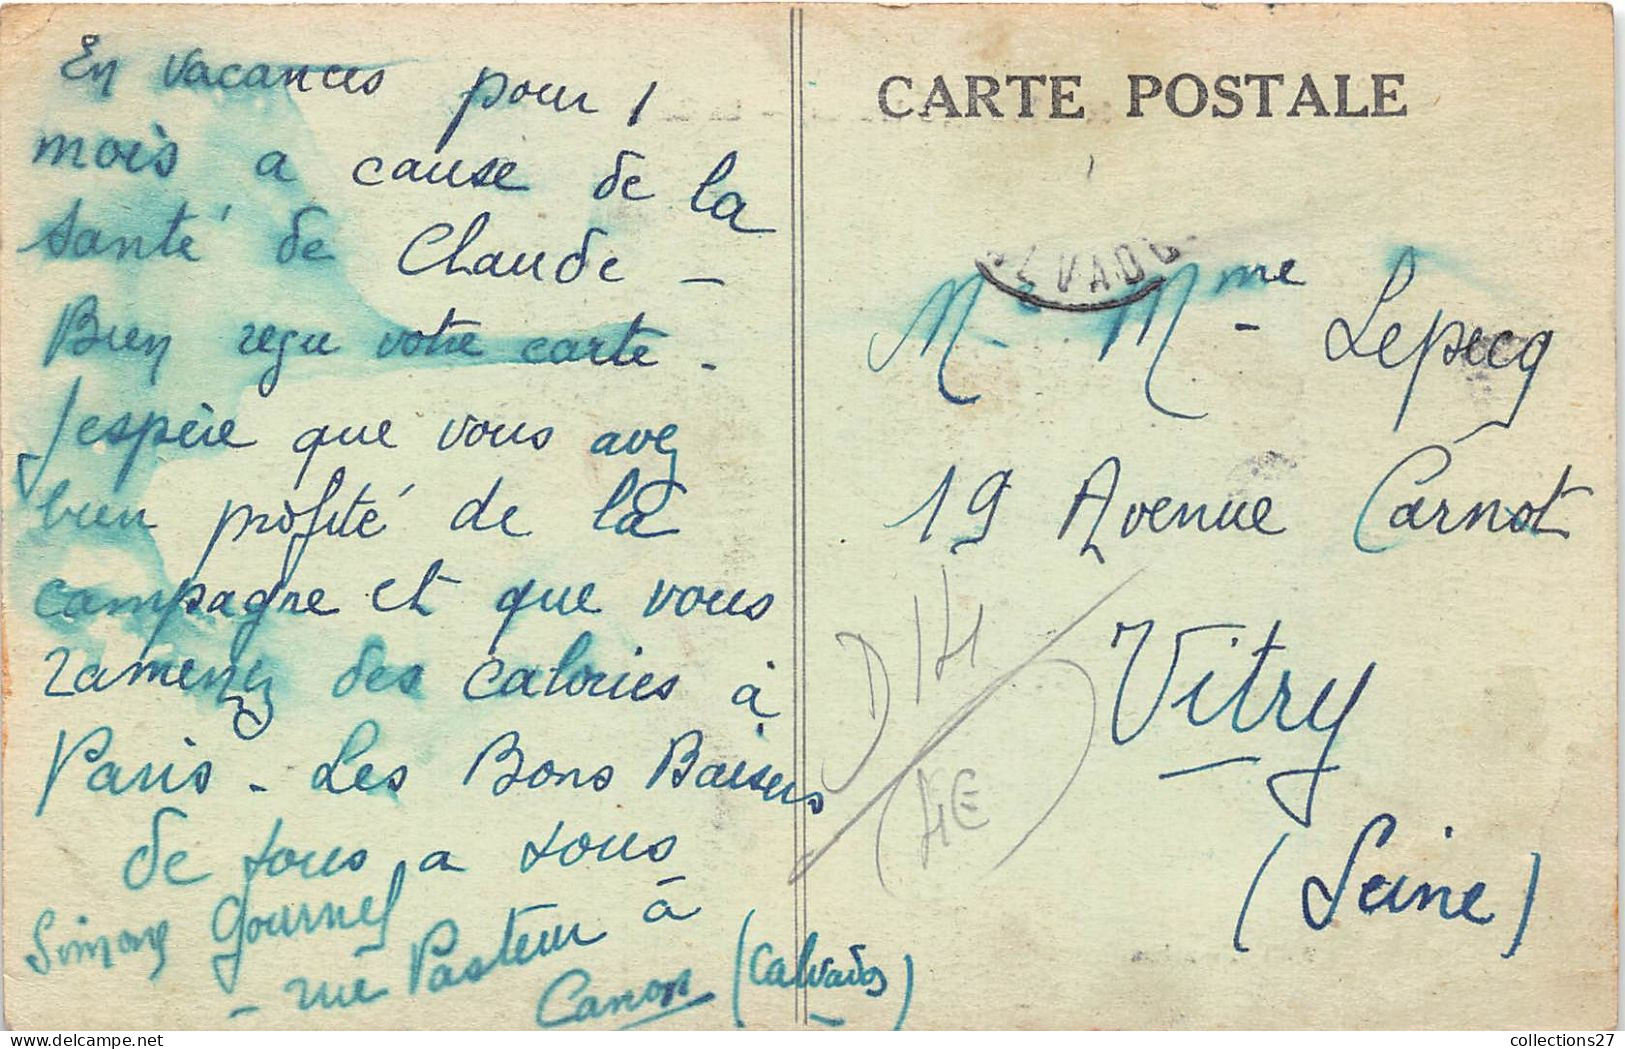 En vacances pour 1
mois a cause de la
santé de Claude -
Bien reçu votre carte -
J'espère que vous avez
bien profité de la
campagne et que vous
ramenez des calories à
Paris - Les Bons Baisers
de tous a tous
Simone Gournel
- rue Pasteur à
Canon (Calvados)
CARTE POSTALE
LVADO
Mr - Mme Lepecq
19 Avenue Carnot
Vitry
(Seine)
D14
4E
collections27